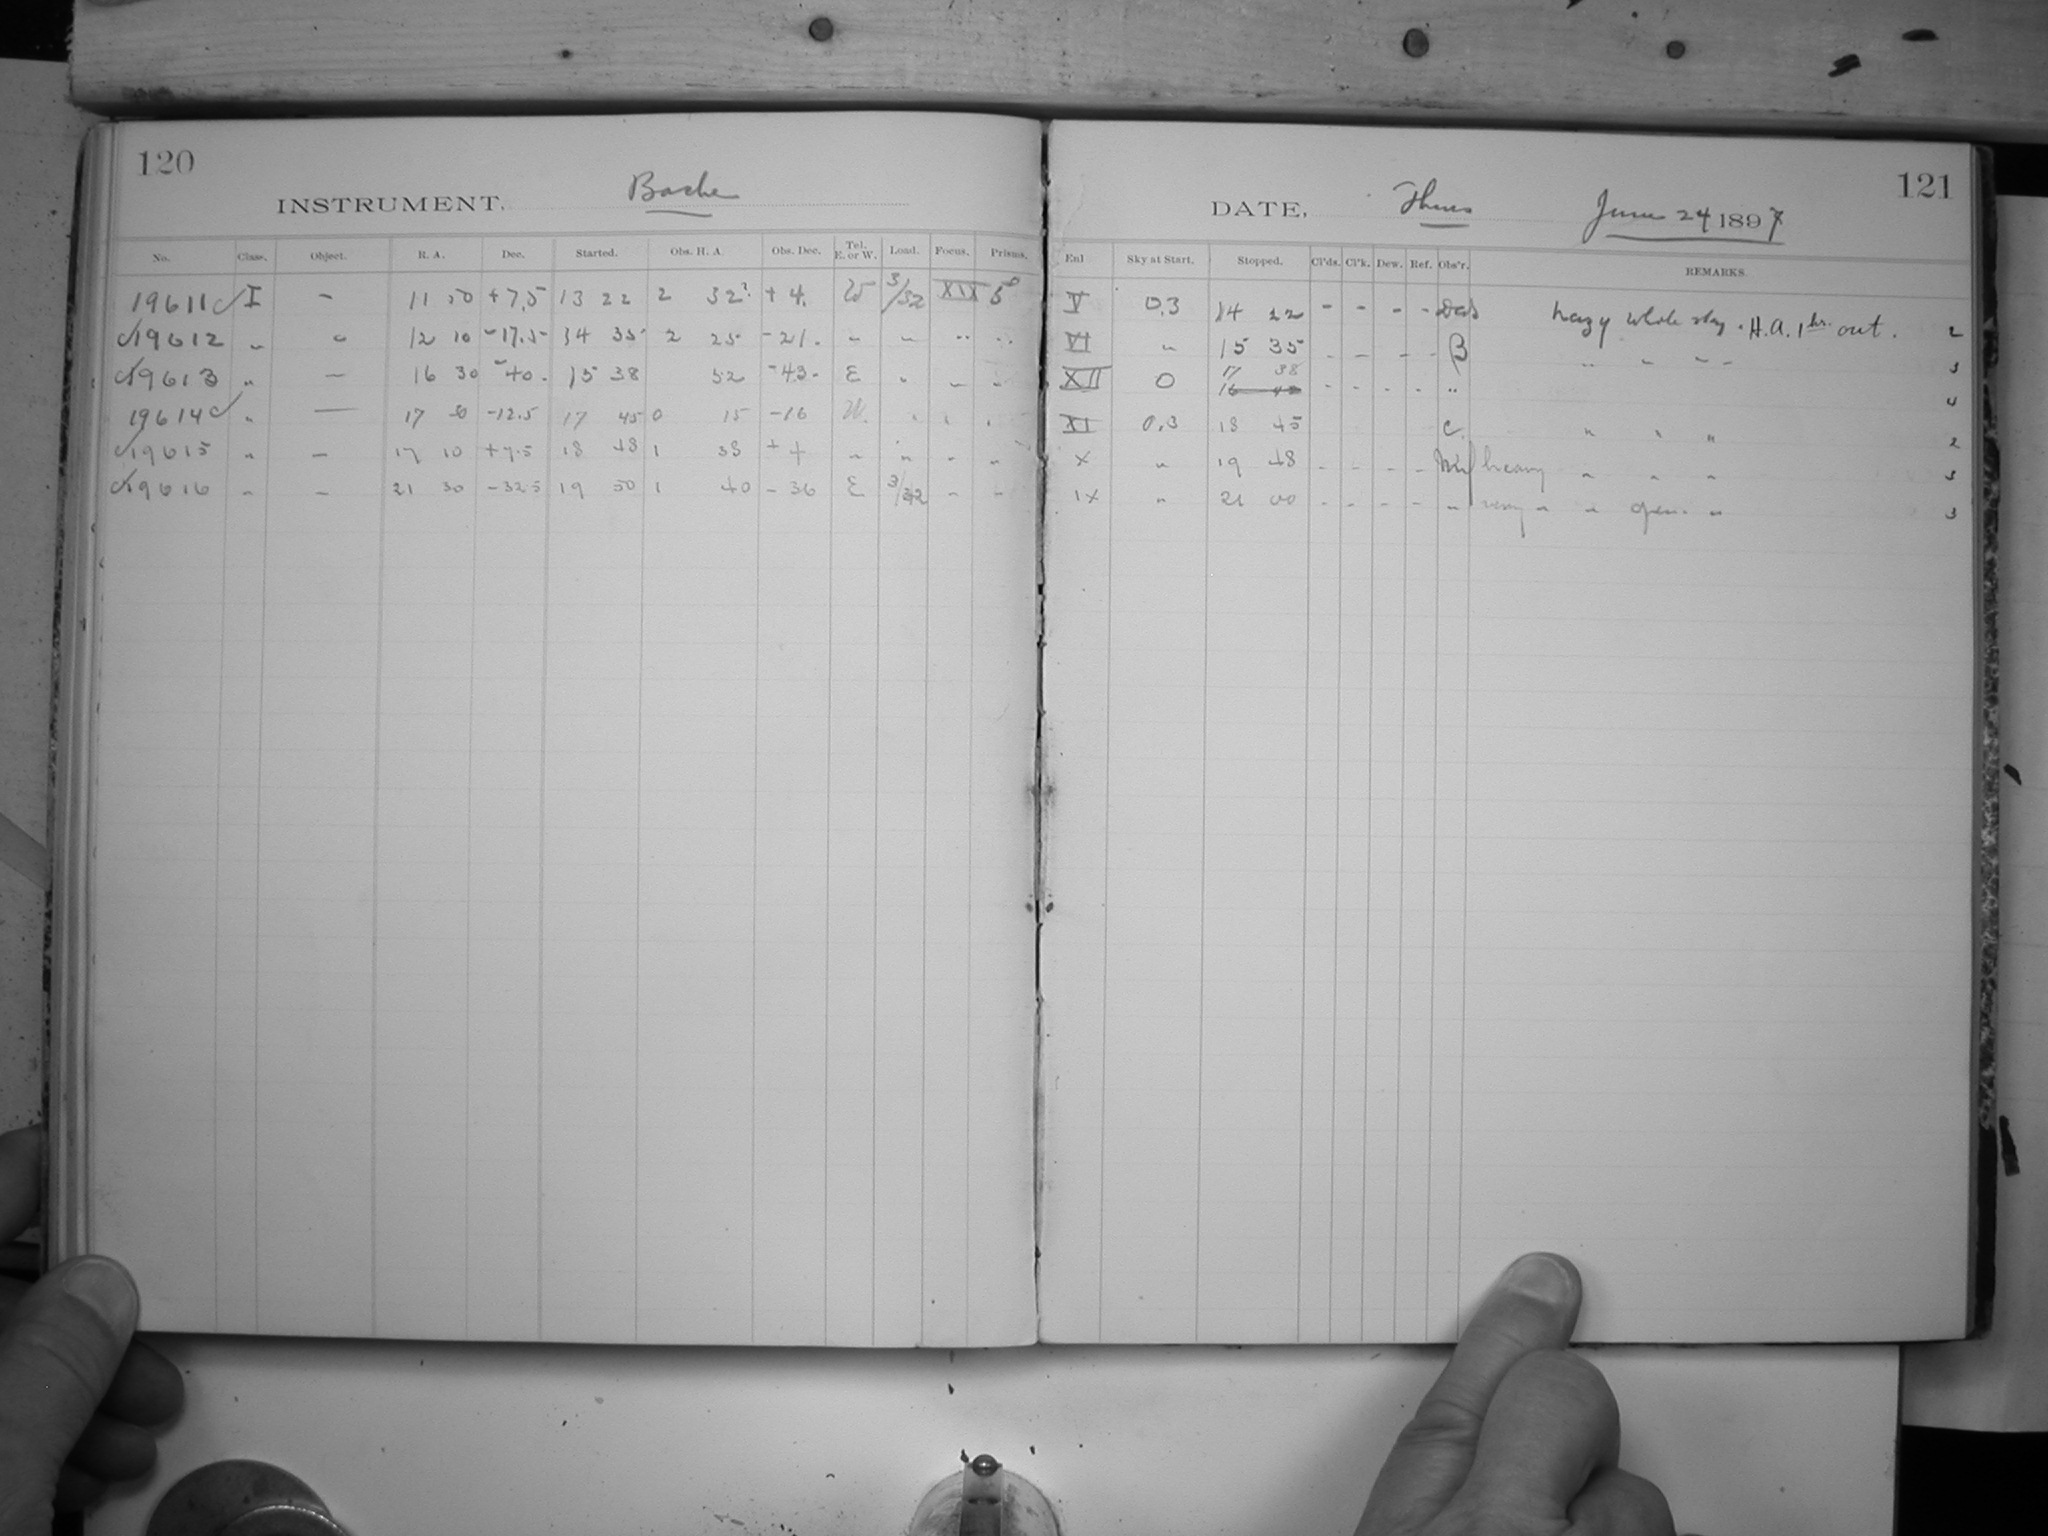 120
INSTRUMENT, Bache
No. Class. Object. R. A. Dec. Started. Obs. H. A. Obs. Dec. Tel. E. or W. Load. Focus. Prisms.
19611 I – 11 50 +7.5 13 22 2 32 +4. W 3/32 XIX 5°
19612 " " 12 10 -17.5 14 35 2 25 -21. " " " "
19613 " — 16 30 -40. 15 38 52 -43. E " " "
19614 " — 17 0 -12.5 17 45 0 15 -16 W. " " "
19615 " — 17 10 +7.5 18 48 1 38 +4 " " " "
19616 " " 21 30 -32.5 19 50 1 40 -36 E 3/32 " "
121
DATE, Thurs June 24 1897
Exl Sky at Start. Stopped. Cl'ds. Cl'k. Dew. Ref. Obs'r. REMARKS.
V 0.3 14 22 - - - - hazy whole sky. H.A. 1 hr. out. 2
VI " 15 35 - - - - B " " " " 3
XII 0 17 38 - - - - " 4
16
XI 0.3 18 45 C. " " " 2
X " 19 48 - - - - heavy " " " 3
IX " 21 00 - - - - " very " " " 3